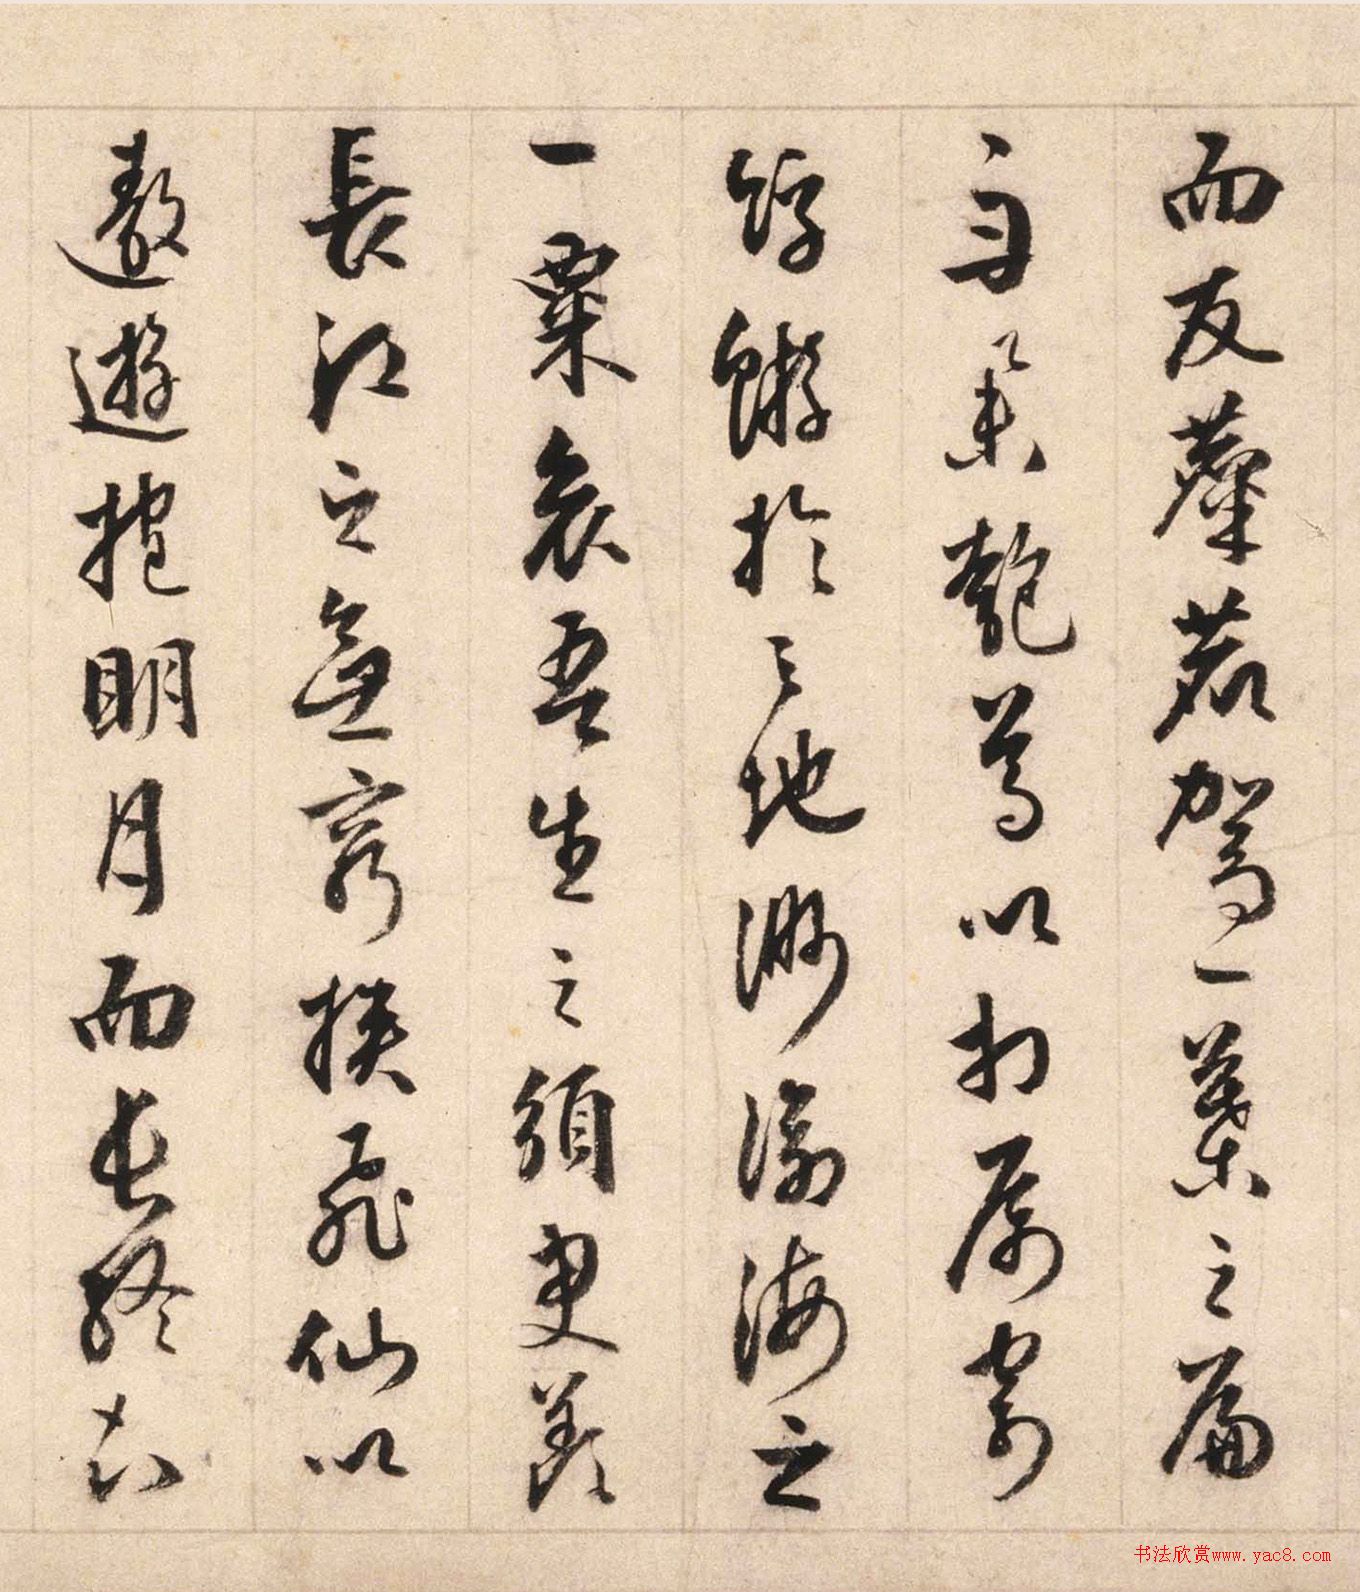 而友麋鹿駕一葉之扁
舟舉匏尊以相属寄
蜉蝣於天地渺滄海之
一粟哀吾生之須臾羨
長江之無窮挾飛仙以
遨遊抱明月而長終知
书法欣赏www.yac8.com